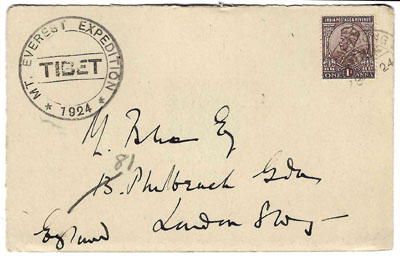 MT. EVEREST EXPEDITION
TIBET
* 1924 *
INDIA POSTAGE & REVENUE
1A
ONE ANNA
24
M. Esq
81
13. Philbeach Gdns
London SW5
England